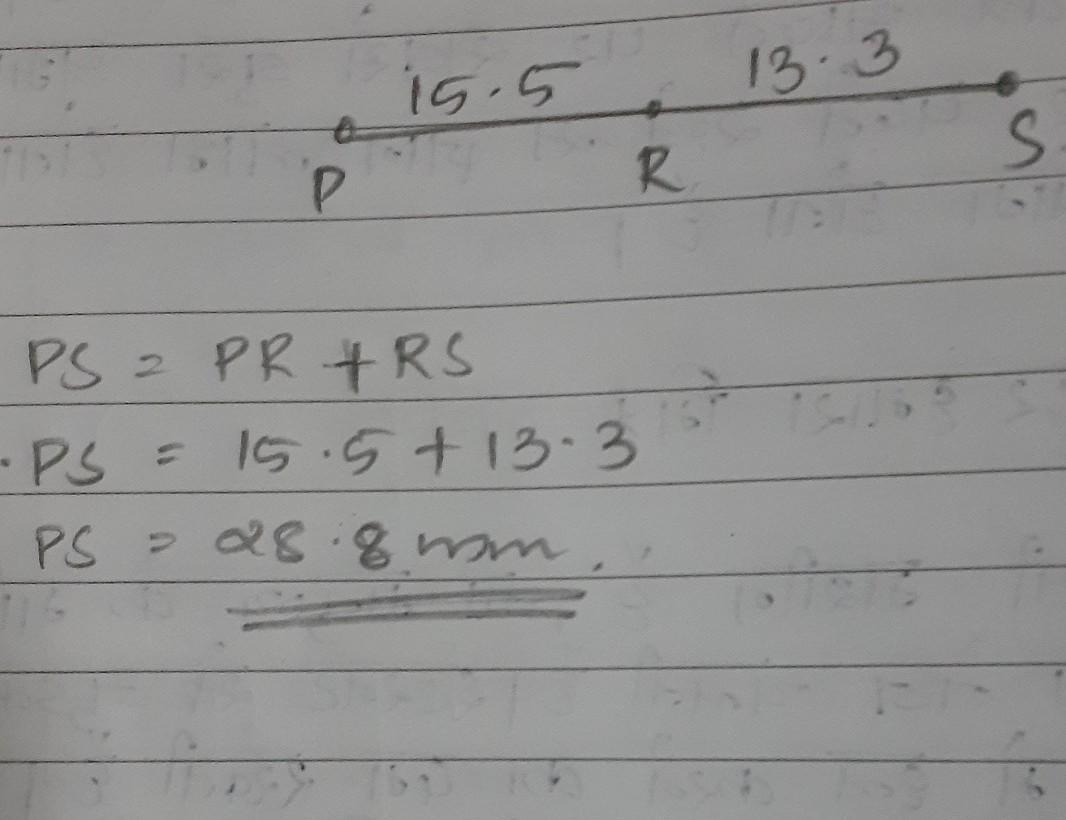 15.5 13.3
P R S
PS = PR + RS
PS = 15.5 + 13.3
PS = 28.8 mm.